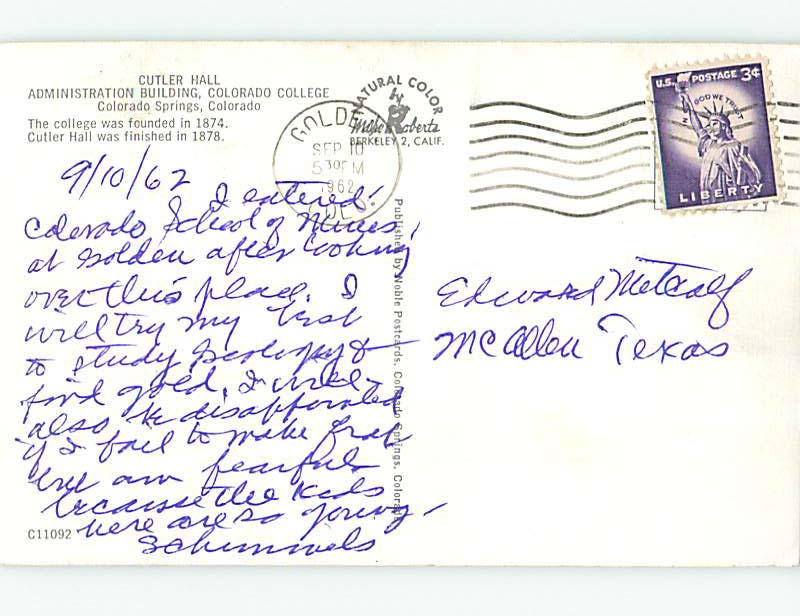 CUTLER HALL
ADMINISTRATION BUILDING, COLORADO COLLEGE
Colorado Springs, Colorado
The college was founded in 1874.
Cutler Hall was finished in 1878.
NATURAL COLOR
Mike Roberts
BERKELEY 2, CALIF.
GOLDEN
SEP 10
530PM
1962
COLO.
U.S. POSTAGE 3¢
IN GOD WE TRUST
LIBERTY
9/10/62 I entered
Colorado School of Mines,
at Golden after looking
over this place. I
will try my best
to study Geology &
find gold. I will
also be disappointed
if I fail to make frat
but am fearful
because the kids
here are so young -
Schimmels
Edward Metcalf
McAllen Texas
Published by Noble Postcards, Colorado Springs, Colorado
C11092